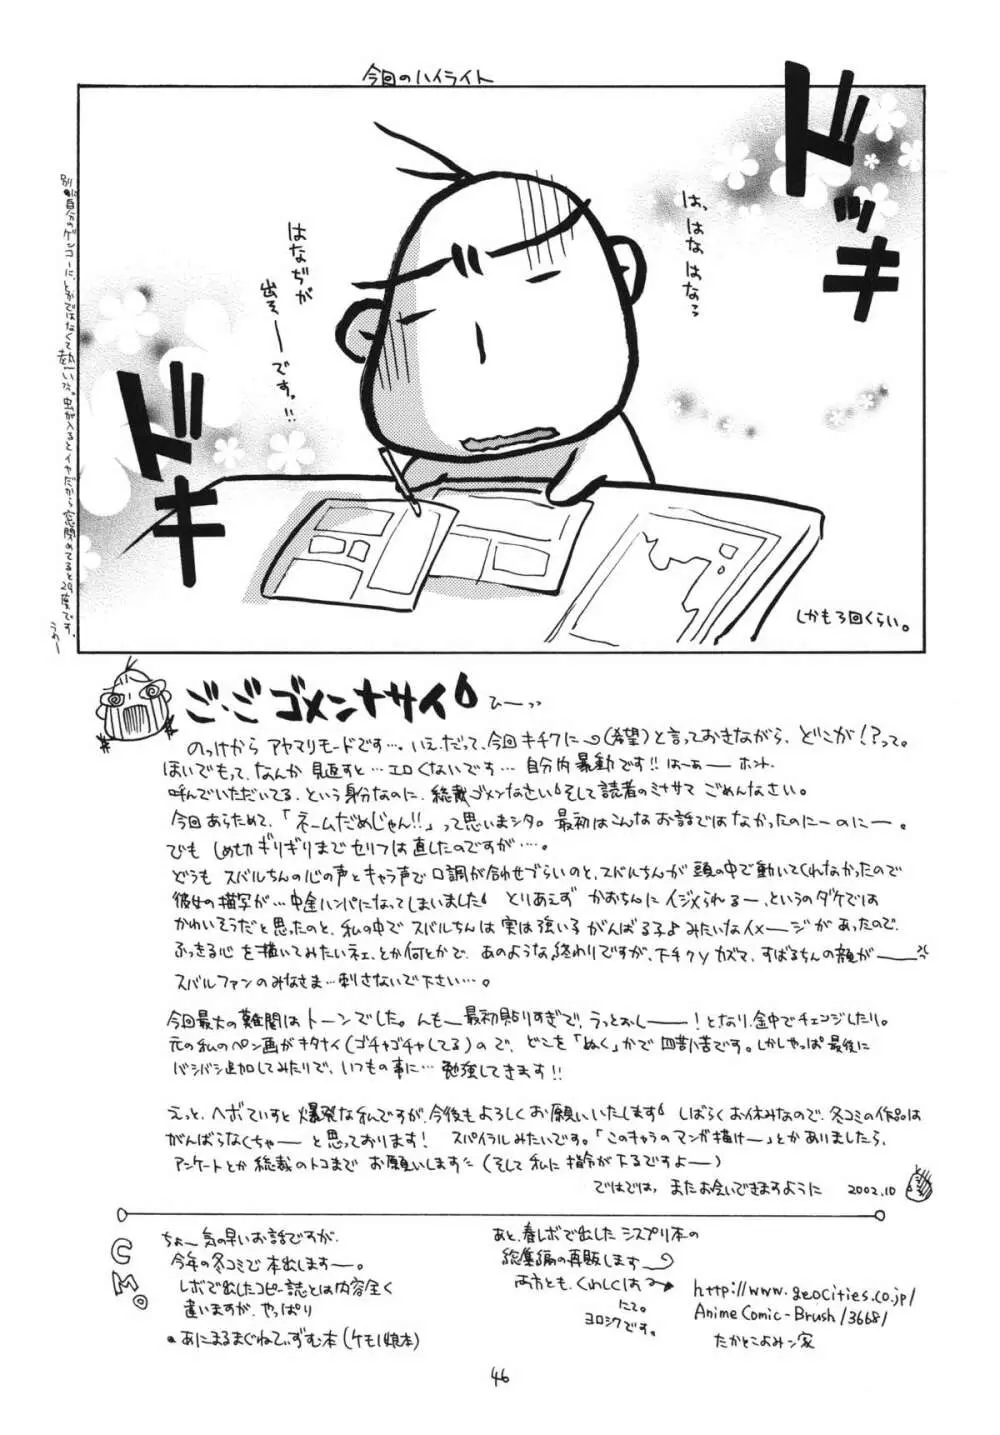 今回のハイライト
ドッキ
ドキ
は、はな はなっ
はなぢが
出そーです。!!
しかも3回くらい。
別に自分のゲンコーに、とかではなくて熱いな。虫が入るとイヤだから窓閉めてると29度です。うめー
ご・ご ゴメンナサイ
ひーっっ
のっけから アヤマリモードです…。いえ、だって、今回キチクに(希望)と言っておきながら、どこが!?って。
ほいでもって、なんか 見返すと…エロくないです… 自分内暴動です!! はーあー ホント
呼んでいただいてる、という身分なのに、総裁ゴメンなさい そして読者のミナサマ ごめんなさい。
今回あらためて、「ネームだめじゃん!!」って思いまシタ。最初はこんなお話ではなかったのにーのにー。
でも しめ切ギリギリまでセリフは直したのですが…。
どうも スバルちんの心の声とキャラ声で口調が合わせづらいのと、スバルちんが 頭の中で動いてくれなかったので
彼女の描写が…中途ハンパになってしまいました とりあえず かおちんに イジメられるー、というのダケでは
かわいそうだと思ったのと、私の中で スバルちんは 実は強い子 がんばる子よ みたいなイメージが あったので、
ふっきる心 を描いてみたいネェ、とか何とかで、あのような終わりですが、下チクy カズマ、すばるちんの顔がー
スバルファンのみなさま…刺さないで下さい…。
今回最大の難関は トーンでした。んもー最初貼りすぎで、うっとおしー!となり、途中でチェンジしたり。
元の私のペン画がキタナイ(ゴチャゴチャしてる)ので、どこを「ぬく」かで 四苦八苦です。しかしやっぱ 最後に
バシバシ追加してみたりで、いつもの事に… 勉強してきます!!
えっと、ヘボていすと 爆発な私ですが、今後もよろしくお願いいたします しばらくお休みなので、冬コミの作品は
がんばらなくちゃー と思っております! スパイラルみたいです。「このキャラのマンガ描けー」とかありましたら、
アンケートとか 総裁のトコまで お願いします (そして私に 指令が下るですよー)
ではでは、またお会いできますように 2002.10
CM。
ちょー気の早いお話ですが、
今年の冬コミで本出しますー。
レボで出したコピー誌とは内容全く
違いますが、やっぱり
・あにまるまぐねてぃずむ本(ケモノ娘本)
あと、春レボで出した シスプリ本の
総集編の再販します
両方とも、くわしくは→
にて。
ヨロシクです。
http://www.geocities.co.jp/
AnimeComic-Brush/3668/
たかとこよみン家
46